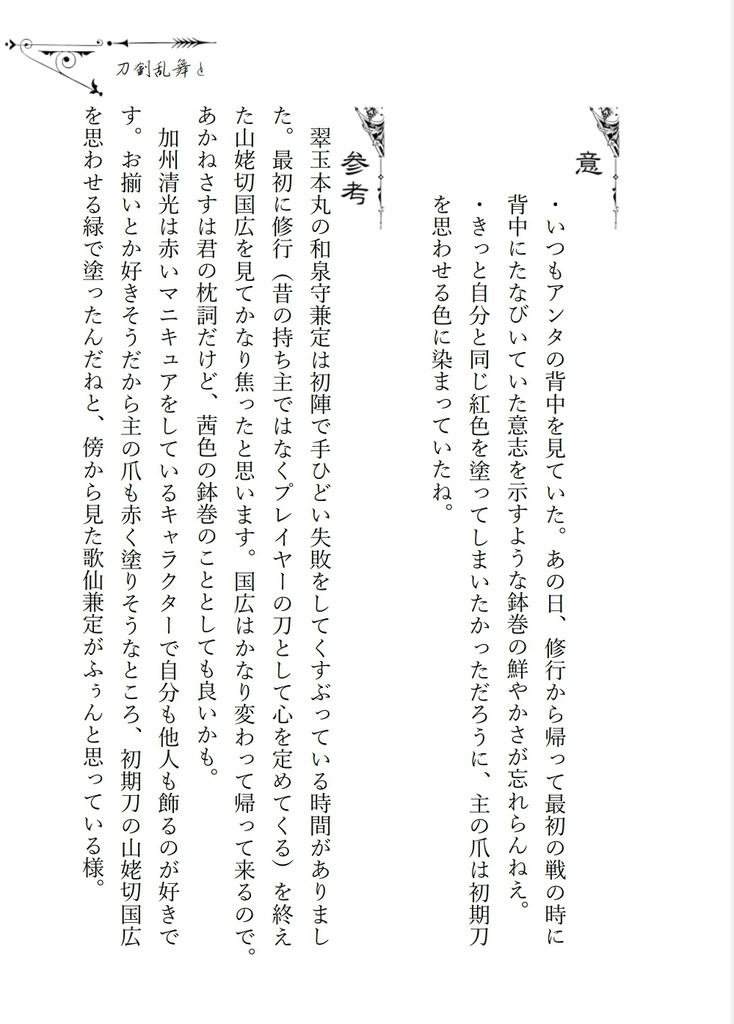 刀剣乱舞と
意
・いつもアンタの背中を見ていた。あの日、修行から帰って最初の戦の時に
背中にたなびいていた意志を示すような鉢巻の鮮やかさが忘れらんねえ。
・きっと自分と同じ紅色を塗ってしまいたかっただろうに、主の爪は初期刀
を思わせる色に染まっていたね。
参考
翠玉本丸の和泉守兼定は初陣で手ひどい失敗をしてくすぶっている時間がありまし
た。最初に修行（昔の持ち主ではなくプレイヤーの刀として心を定めてくる）を終え
た山姥切国広を見てかなり焦ったと思います。国広はかなり変わって帰って来るので。
あかねさすは君の枕詞だけど、茜色の鉢巻のこととしても良いかも。
加州清光は赤いマニキュアをしているキャラクターで自分も他人も飾るのが好きで
す。お揃いとか好きそうだから主の爪も赤く塗りそうなところ、初期刀の山姥切国広
を思わせる緑で塗ったんだねと、傍から見た歌仙兼定がふぅんと思っている様。